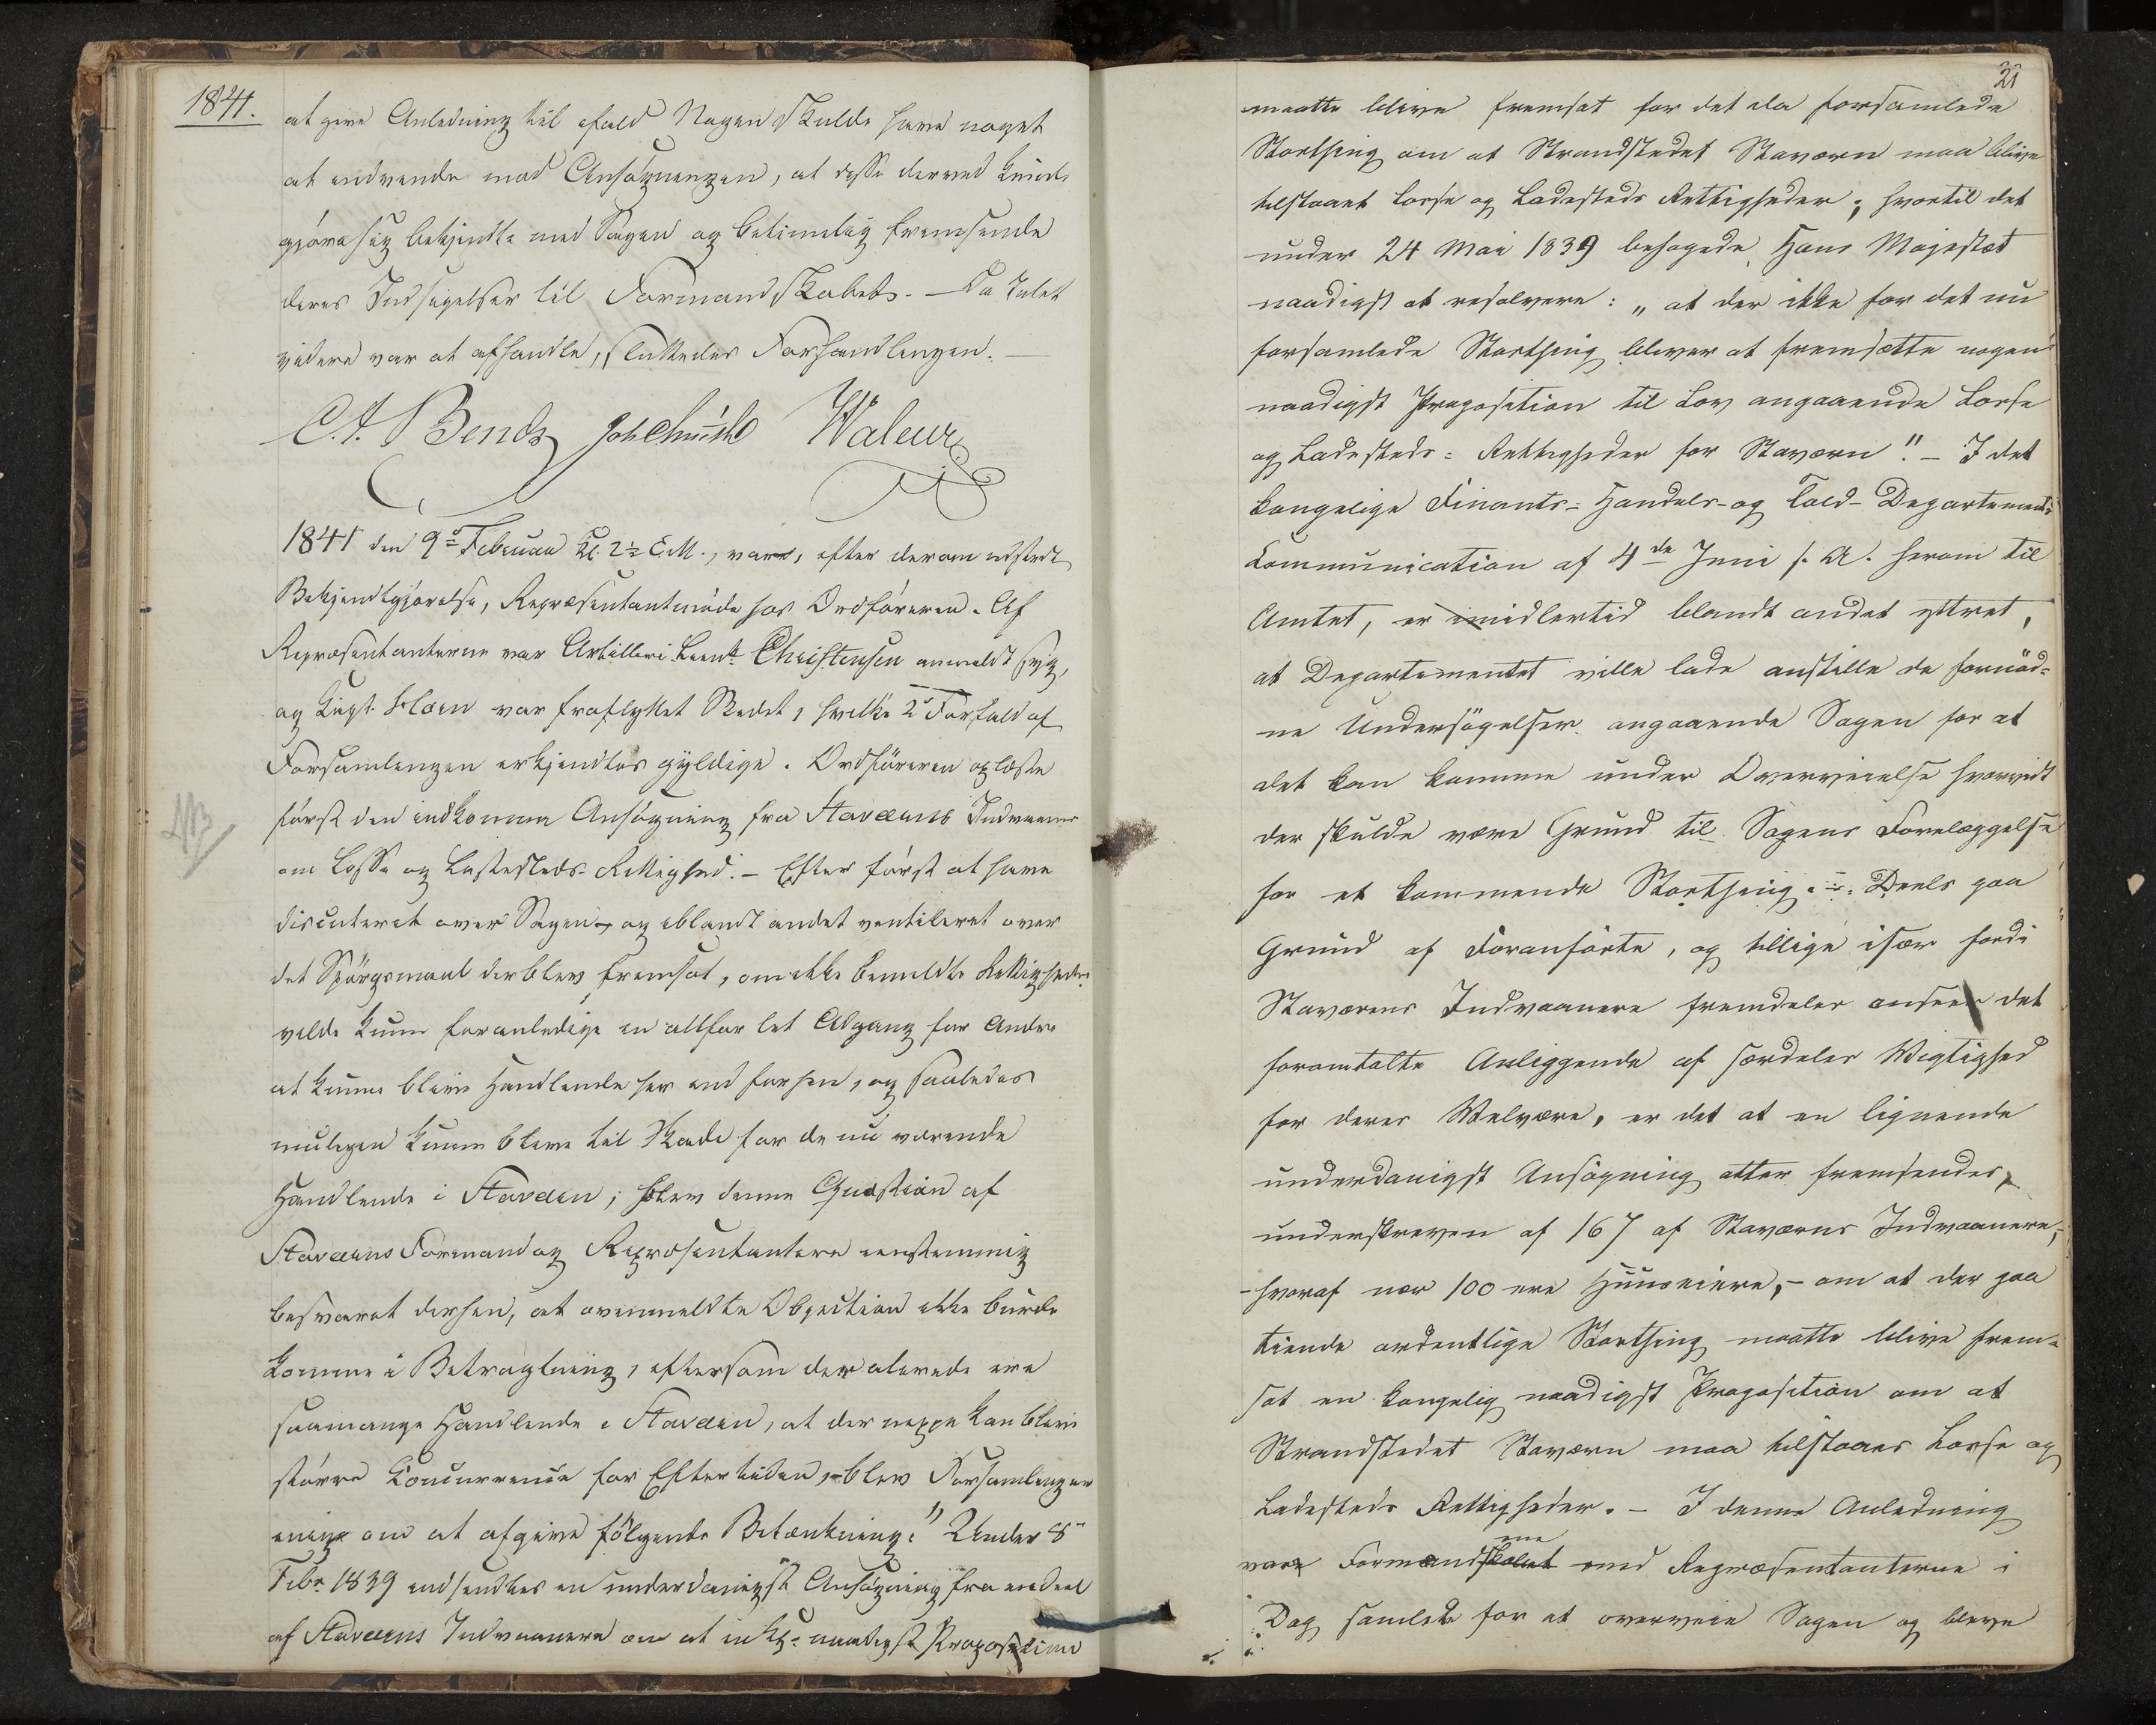 1841.
at give Anledning til ifald Nogen skulde have noget
at indvende mod Ansøgningen, at disse derved kunde
gjøre sig bekjendte med Sagen og betimelig fremsende
deres Indsigelser til Formandskabet. — Da Intet
videre var at afhandle, sluttedes Forhandlingen. —
C. A. Bentz Joh Waleur
1841 den 9de Februar Kl. 2½ E.M., var, efter derom udstedt
Bekjendtgjørelse, Repræsentantmøde hos Ordføreren. Af
Repræsentanterne var Artilleri Lieutn. Christensen anmeldt syg,
og Kapt. Hoen var fraflyttet Stedet, hvilke 2de Forfald af
Forsamlingen erkjendtes gyldige. Ordføreren oplæste
først den indkomne Ansøgning fra Staværns Indvaanere
om Losse og Ladesteds-Rettighed. — Efter først at have
discuteret over Sagen og iblandt andet ventileret over
det Spørgsmaal der blev fremsat, om ikke bemeldte Rettigheder
vilde kunne foranledige en altfor let Adgang for Andre
at kunne blive Handlende her end forhen, og saaledes
muligen kunne blive til Skade for de nu værende
Handlende i Staværn; blev denne Quæstion af
Staværns Formænd og Repræsentantere eenstemmig
besvaret derhen, at ovenmeldte Objection ikke burde
komme i Betragtning, eftersom der allerede ere
saamange Handlende i Staværn, at der neppe kan blive
større Concurrence for Eftertiden, — blev Forsamlingen
enig om at afgive følgende Betænkning: "Under 8de
Febr 1839 indsendtes en underdanigst Ansøgning fra endeel
af Staværns Indvaanere om at en Kgl. naadigst Proposition
21
maatte blive fremsat for det da forsamlede
Storthing om at Strandstedet Staværn maa blive
tilstaaet Losse og Ladesteds Rettigheder; hvortil det
under 24 Mai 1839 behagede Hans Majestæt
naadigst at resolvere: „at der ikke for det nu
forsamlede Storthing bliver at fremsætte nogen
naadigst Proposition til Lov angaaende Losse
og Ladesteds-Rettigheder for Staværn". — I det
kongelige Finants-Handels-og Told-Departements
Communication af 4de Juni s. A. herom til
Amtet, er imidlertid blandt andet yttret,
at Departementet ville lade anstille de fornød-
ne Undersøgelser angaaende Sagen for at
det kan komme under Overveielse hvorvidt
der skulde være Grund til Sagens Forelæggelse
for et kommende Storthing. — Deels paa
Grund af Foranførte, og tillige især fordi
Staværns Indvaanere fremdeles anseer det
foromtalte Anliggende af særdeles Vigtighed
for deres Velvære, er det at en lignende
underdanigst Ansøgning atter fremsendes,
underskreven af 167 af Staværns Indvaanere,
- hvoraf nær 100 ere Huuseiere, - om at der paa
tiende ordentlige Storthing maatte blive frem-
sat en kongelig naadigst Proposition om at
Strandstedet Staværn maa tilstaaes Losse og
Ladesteds Rettigheder. — I denne Anledning
vare Formændskabet ene med Repræsentanterne i
Dag samlede for at overveie Sagen og bleve